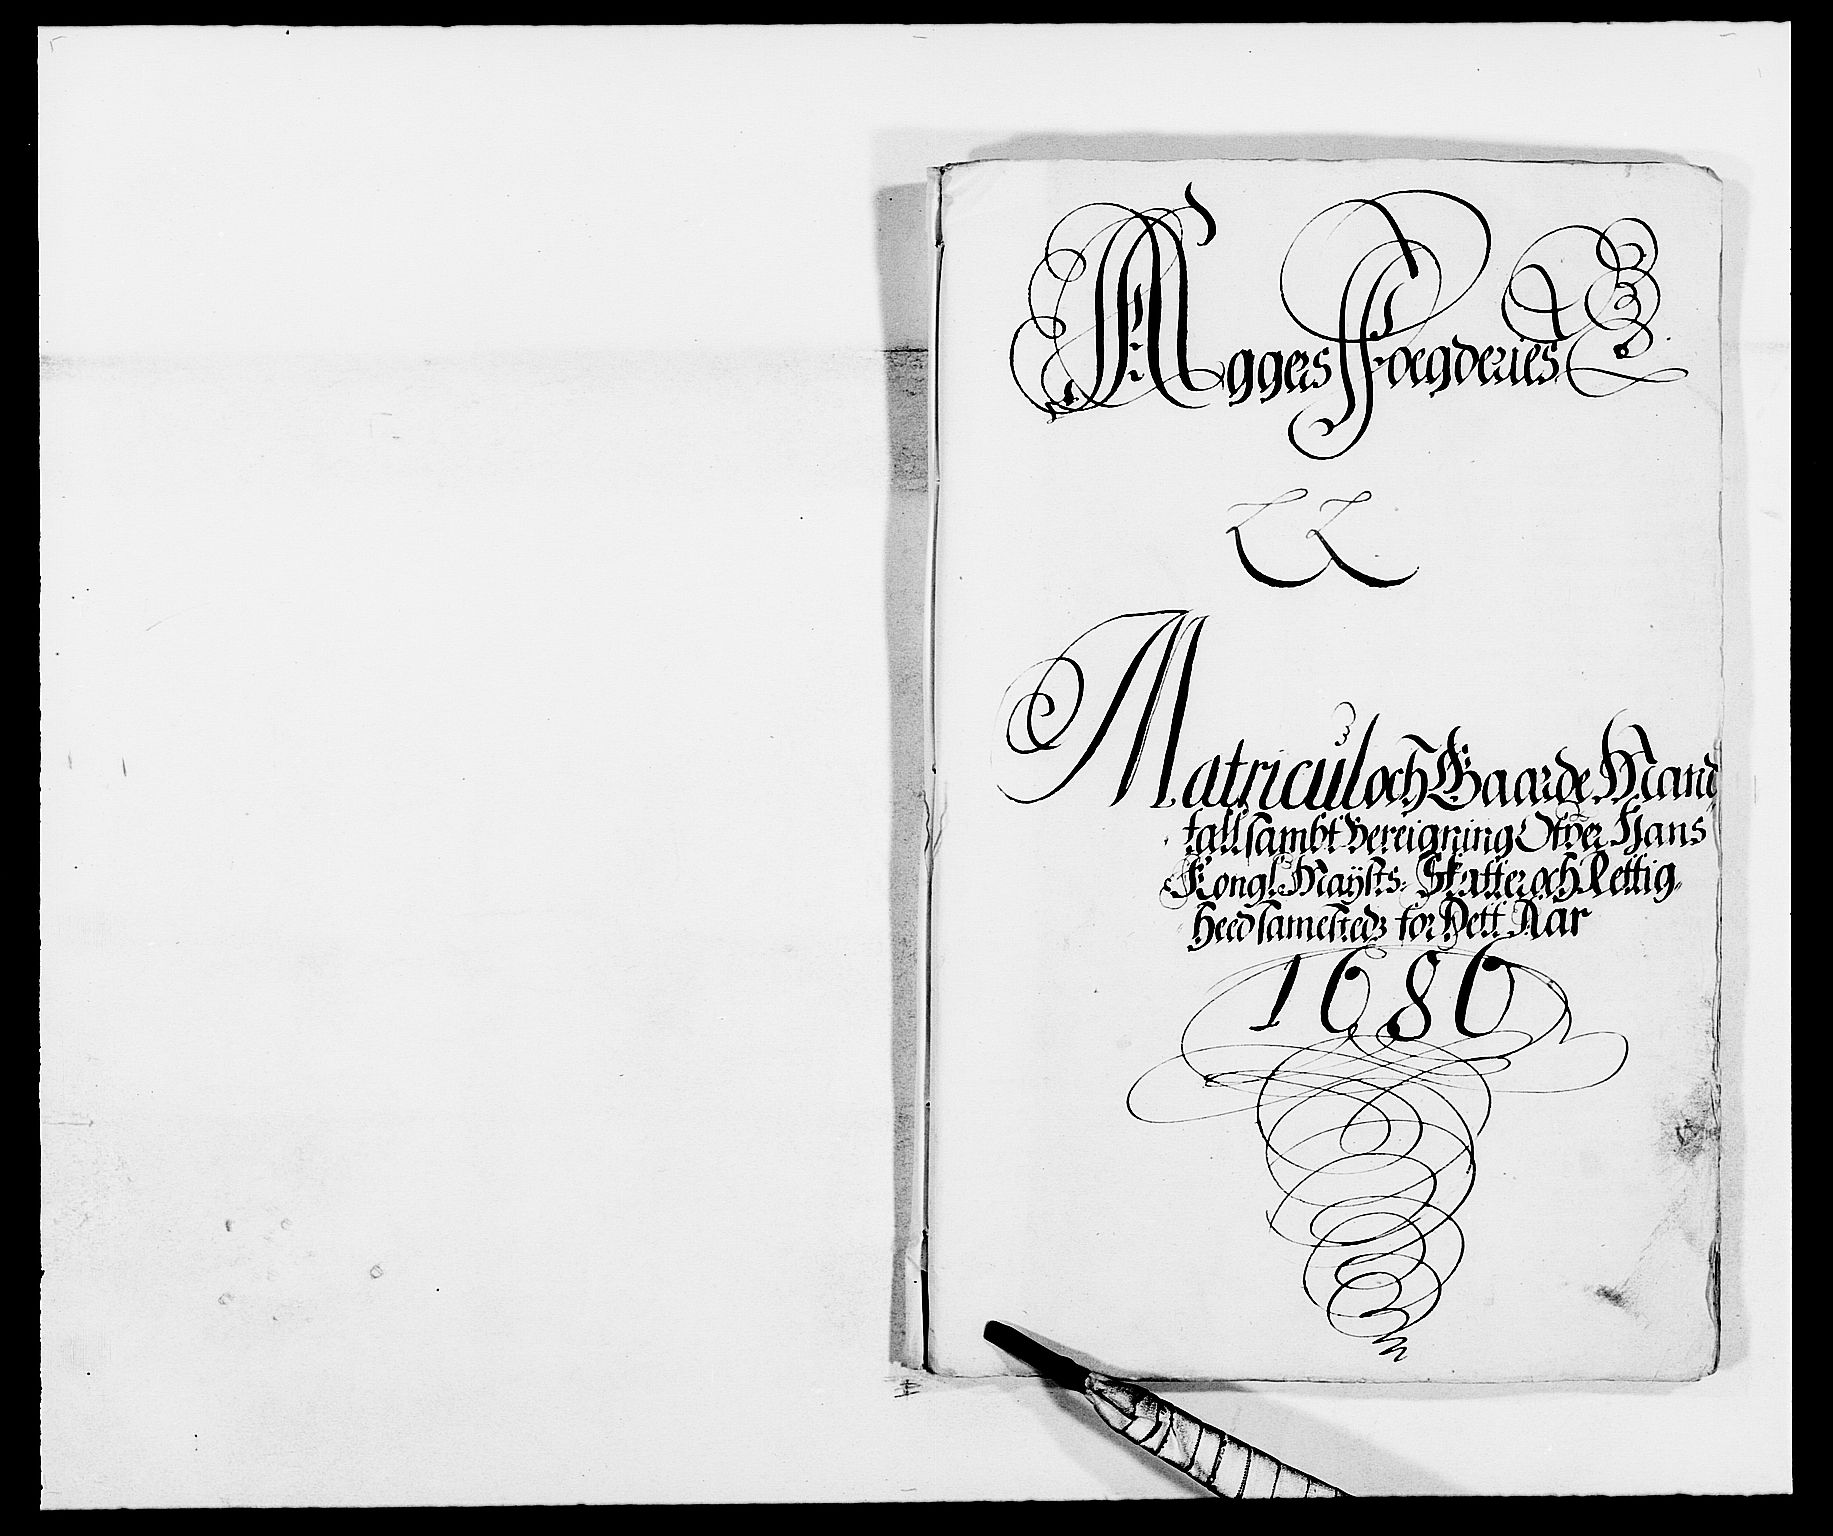 Aggers Foegderies
Matricul och Gaarde Mand
tall sambt bereigning Ofver Hans
Kongl. Mayšts: Skatter och Rettig-
heed samesteds for Dett Aar
1686